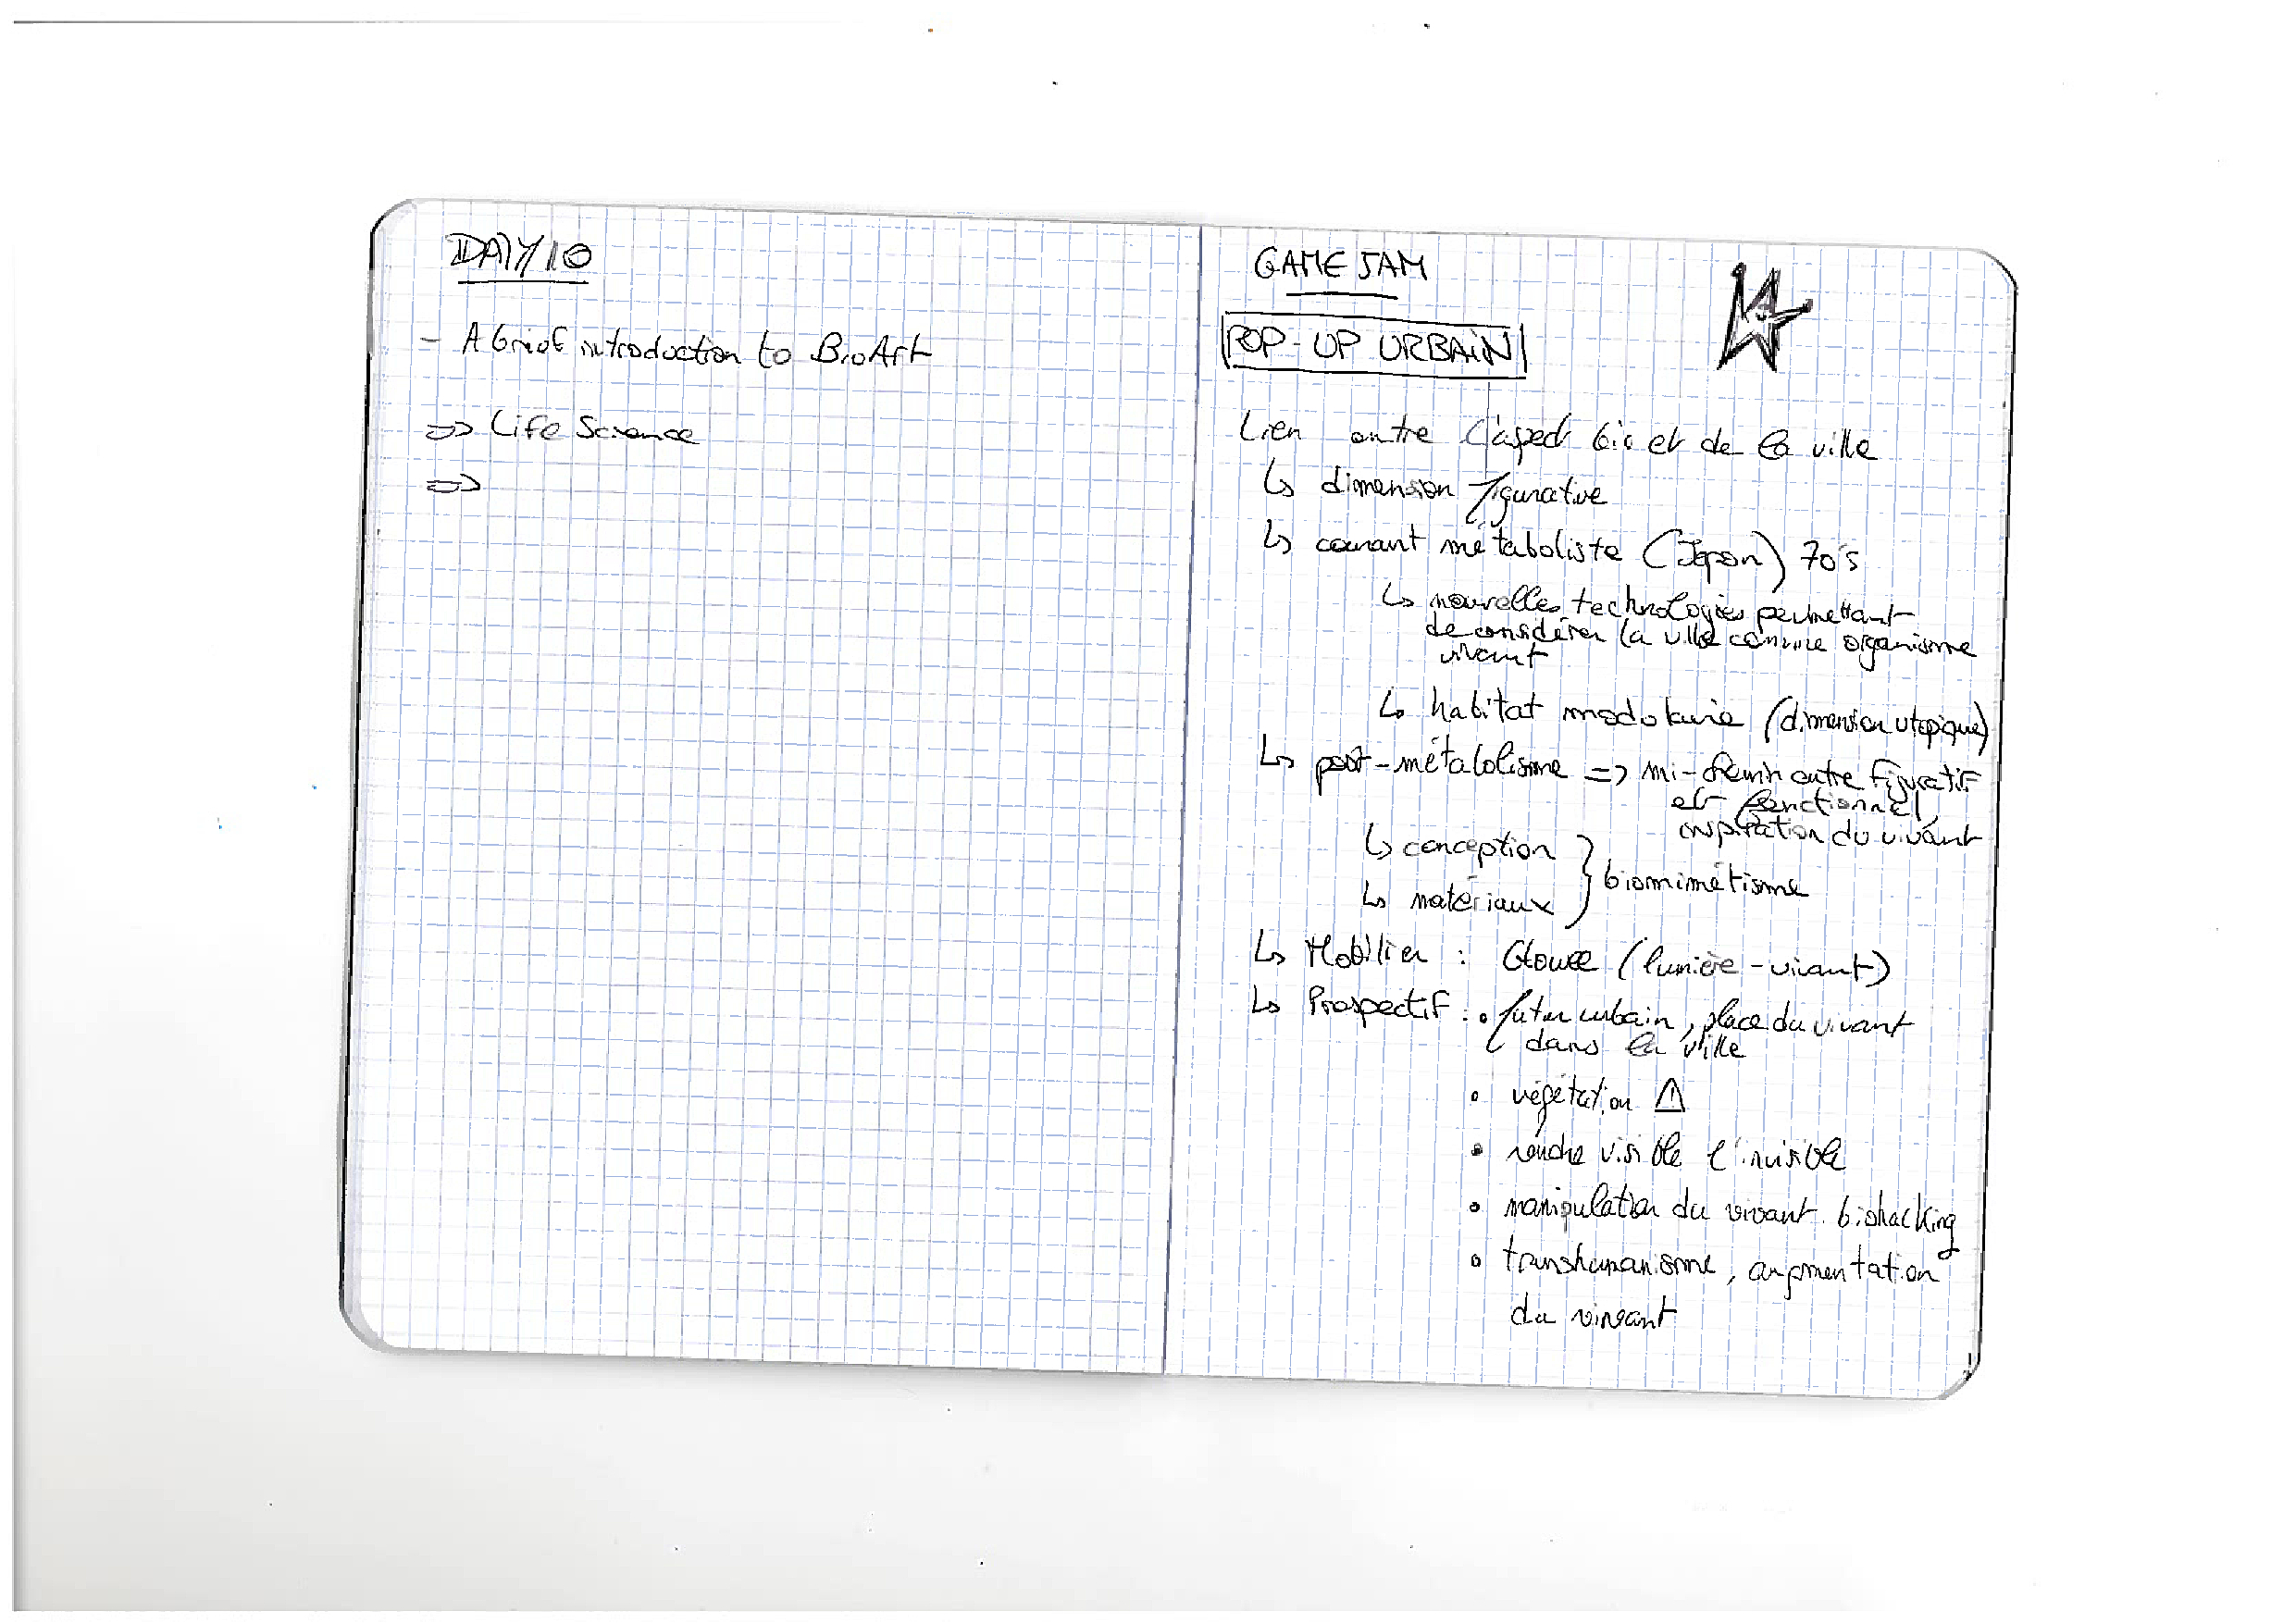 DAY 10
- A brief introduction to BioArt
=> Life Science
=>
GAME JAM
POP-UP URBAiN
Lien entre l'aspect bio et de la ville
↳ dimension figurative
↳ courant métaboliste (Japon) 70's
↳ nouvelles technologies permettant
de considérer la ville comme organisme
vivant
↳ habitat modulaire (dimension utopique)
↳ post-métabolisme => mi-chemin entre figuratif
et fonctionnel,
inspiration du vivant
↳ conception
↳ matériaux } biomimétisme
↳ Mobilier : Glowee (lumière - vivant)
↳ Prospectif : • futur urbain, place du vivant
dans la ville
• végétation ⚠
• rendre visible l'invisible
• manipulation du vivant. biohacking
• transhumanisme, augmentation
du vivant